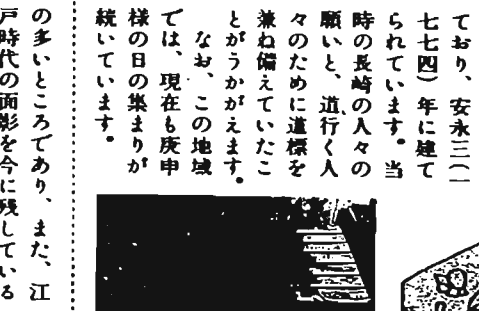 ており、安永三(一
七七四)年に建て
られています。当
時の長崎の人々の
願いと、道行く人
々のために道標を
兼ね備えていたこ
とがうかがえます。
なお、この地域
では、現在も庚申
様の日の集まりが
続いています。
の多いところであり、また、江
戸時代の面影を今に残している